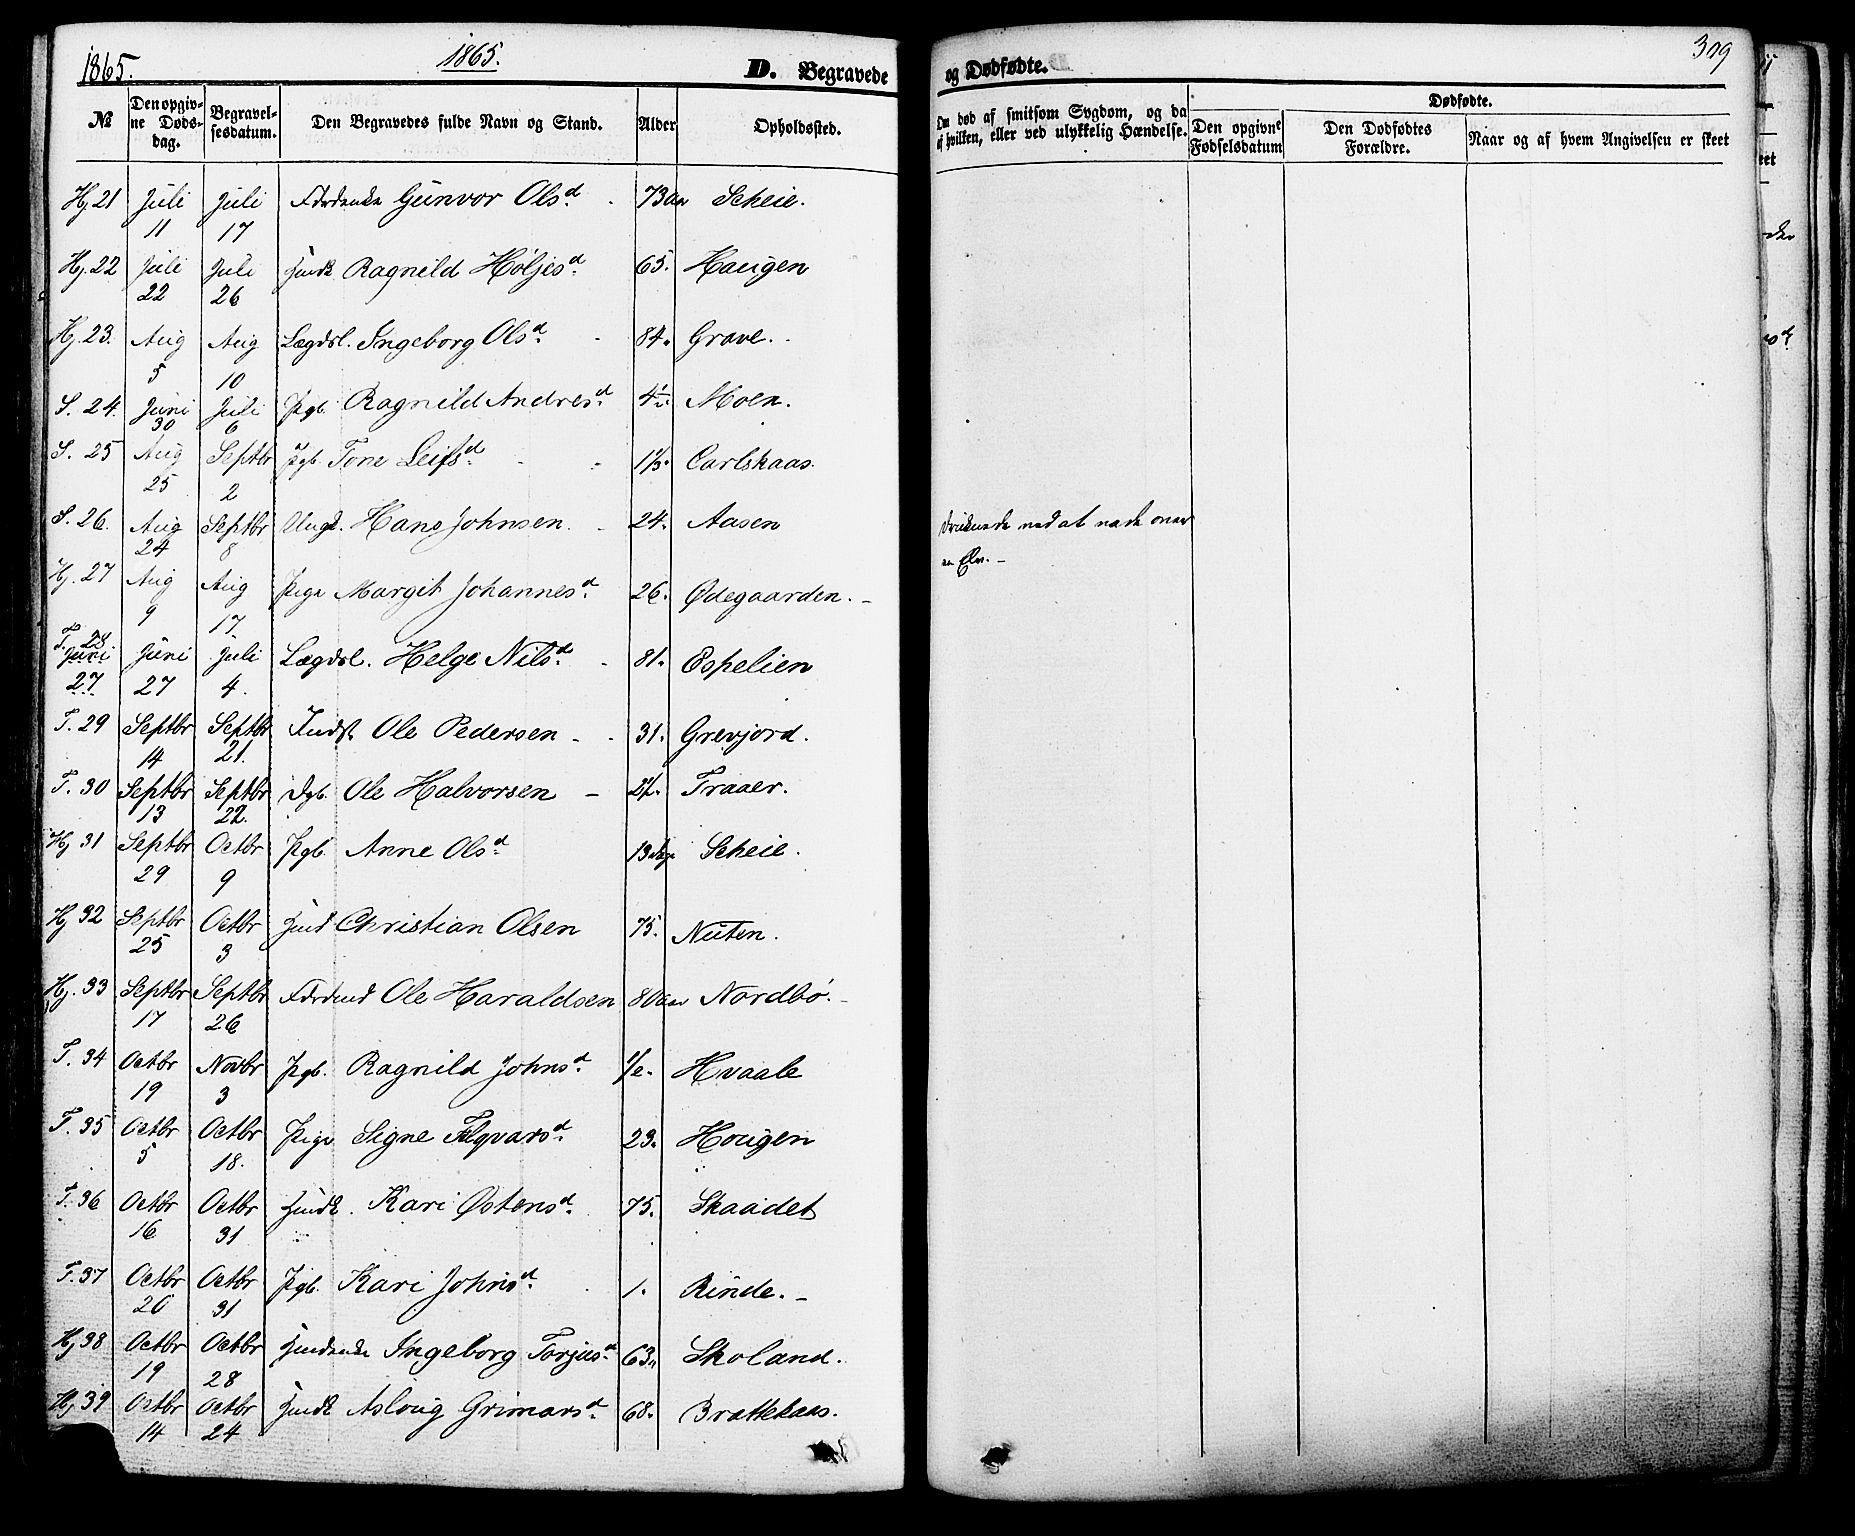 1865. 1865. D. Begravede
№ Den opgivne Dødsdag. Begravelsesdatum. Den Begravedes fulde Navn og Stand. Alder Opholdssted.
Hj 21 Juli 11 Juli 17 Gunvor Olsd. 73 aar Scheie.
Hj. 22 Juli 22 Juli 26 Ragnild Höljesd. 65. Haugen
Hj. 23. Aug 5 Aug 10 Lægdsl. Ingeborg Olsd. 84. Grave.
S. 24. Juni 30 Juli 6 Pgb. Ragnild Andresd. Moen.
S. 25 Aug 25 Septbr 2 Pgb. Tone Leifsd. Carlskaas.
S. 26. Aug 24 Septbr 8 Ungk. Hans Johnsen. 24. Aasen
Hj. 27 Aug 9 Aug 17 Pige Margit Johannesd. 26. Ødegaarden. –
T. 28 Juni 27 Juni 27 Juli 4. Lægdsl. Helge Nilsd. 81. Espelien
T. 29 Septbr 14 Septbr 21. Indst Ole Pedersen 31. Grevjord.
T. 30 Septbr 13 Septbr 22. Dgb. Ole Halvorsen – Traaer.
Hj 31 Septbr 29 Octbr 9 Pgb. Anne Olsd. 13 Scheie.
Hj 32 Septbr 25 Octbr 3 Christian Olsen 75. Nuten.
Hj. 33 Septbr 17 Septbr 26 Ole Haraldsen 80 aar Nordbö. –
T. 34 Octbr 19 Novbr 3 Pgb. Ragnild Johnsd. Hvaale
T. 35 Octbr 5 Octbr 18. Pige Signe 23. Hougen
T. 36 Octbr 16 Octbr 31 Kari Østensd. 75. Skaadet
T. 37 Octbr 20 Octbr 31 Pgb. Kari Johnsd. 1. Rinde. –
Hj 38 Octbr 19 Octbr 28 Ingeborg Torjusd. 63. Skoland.
Hj 39 Octbr 14 Octbr 24 Asloug Grimarsd. 68. Brattekaas.
og Dødfødte. 309
Om død af smitsom Sygdom, og da af hvilken, eller ved ulykkelig Hændelse. Dødfødte.
Den opgivne Fødselsdatum Den Dødfødtes Forældre. Naar og af hvem Angivelsen er skeet
druknede ved at vade over
en Elv. –